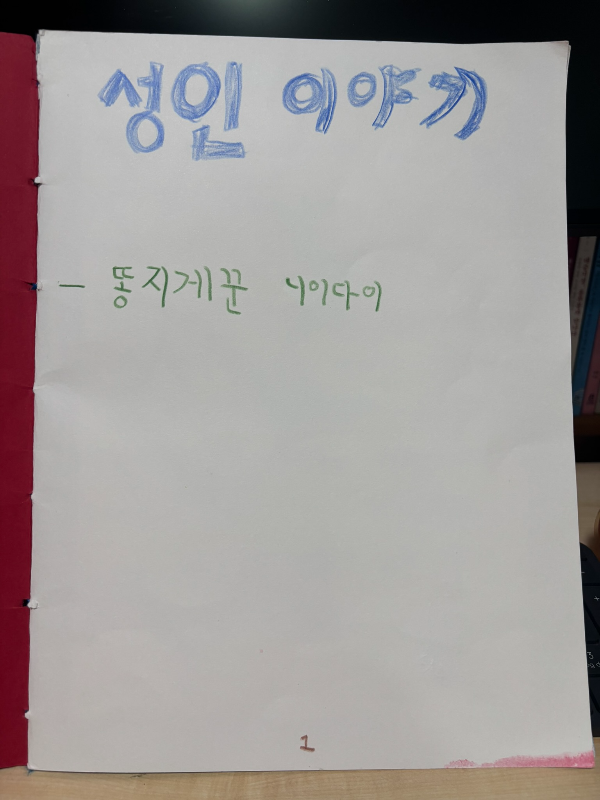 성인 이야기
- 똥지게꾼 니이다이
1